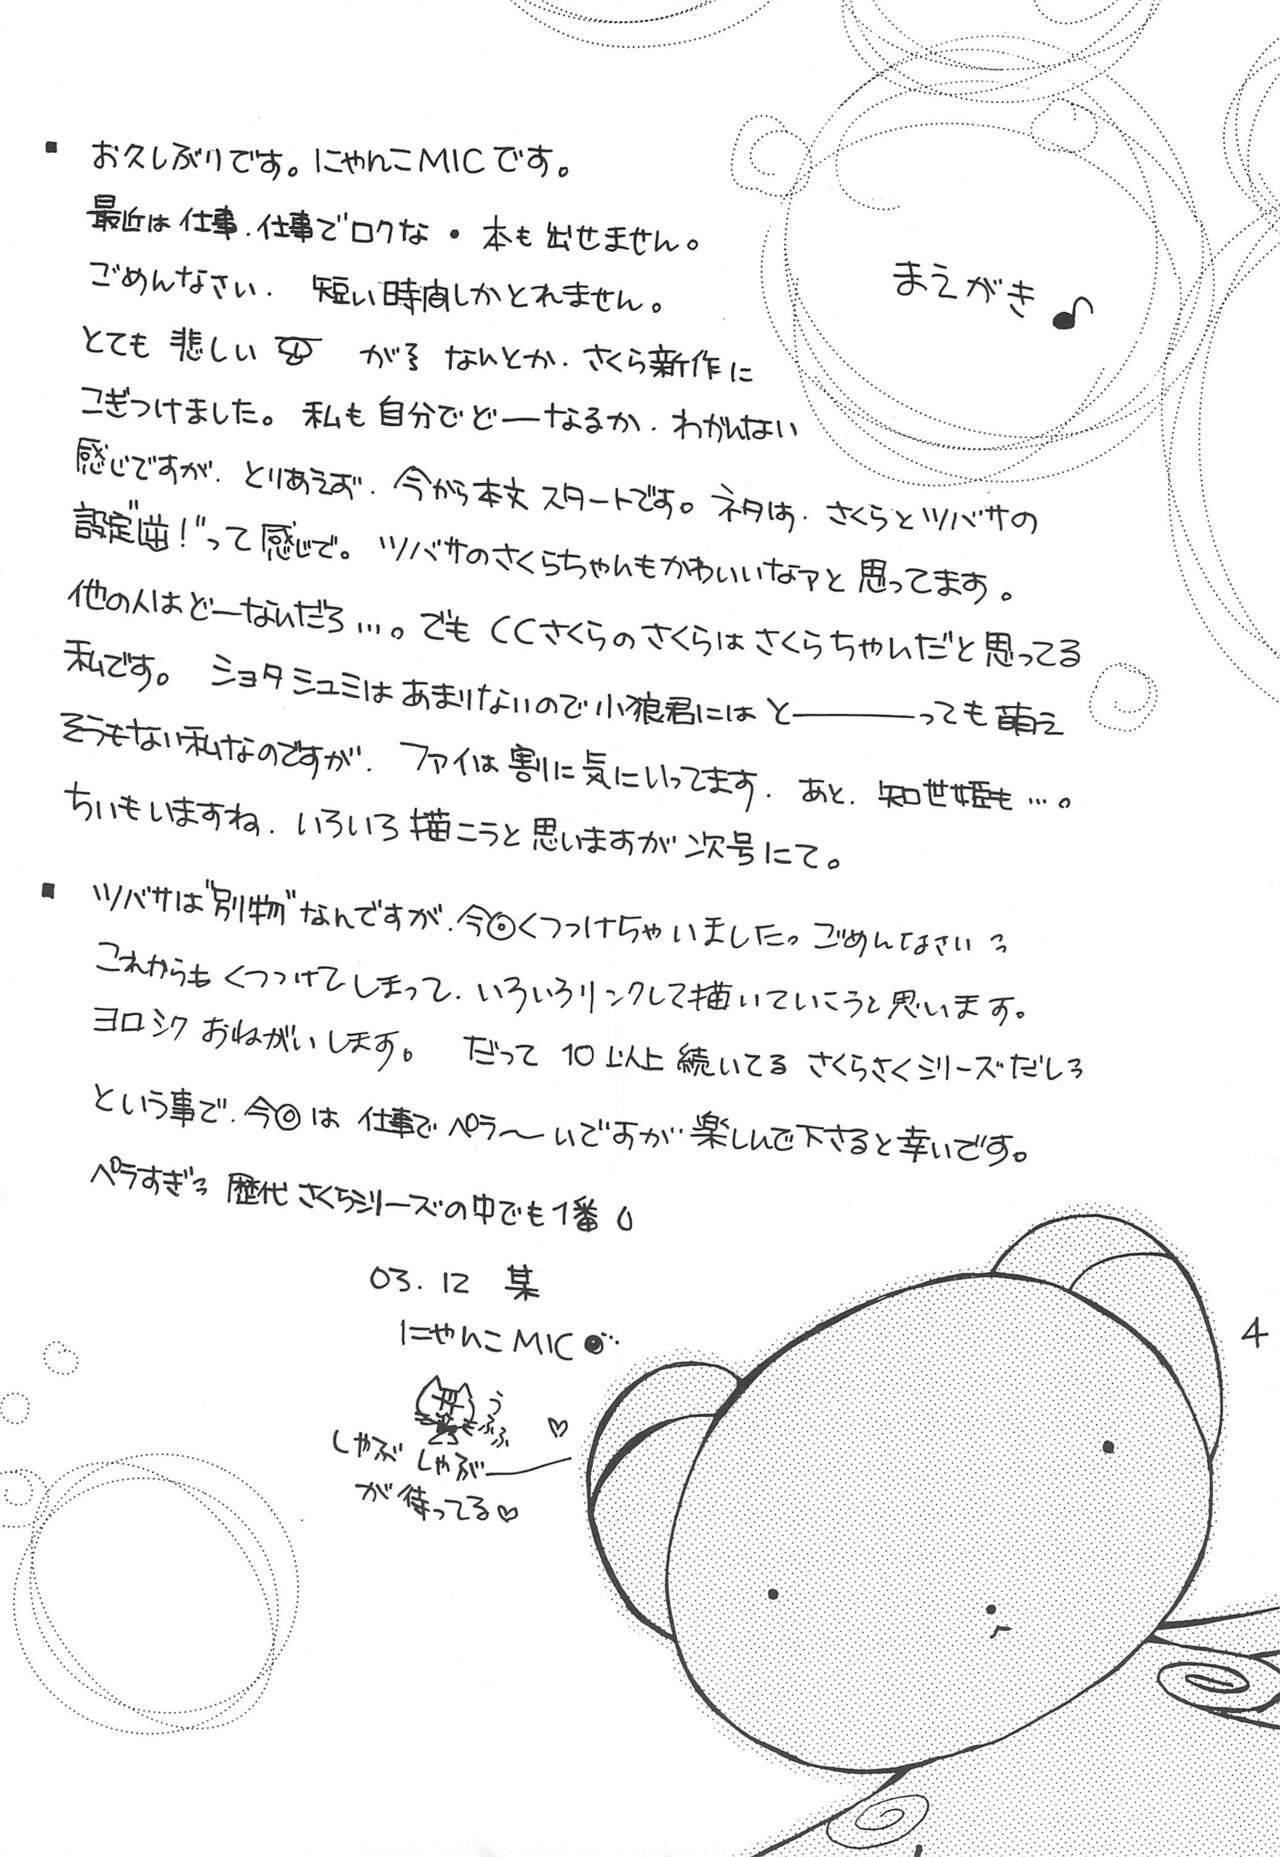 まえがき♪
■ お久しぶりです。にゃんこMICです。
最近は仕事.仕事でロクな・本も出せません。
ごめんなさい. 短い時間しかとれません。
とても悲しい がなんとか.さくら新作に
こぎつけました。私も自分でどーなるか.わかんない
感じですが.とりあえず.今から本文スタートです。ネタは.さくらとツバサの
設定"逆!"って感じで。ツバサのさくらちゃんもかわいいなァと思ってます。
他の人はどーなんだろ…。でもCCさくらのさくらはさくらちゃんだと思ってる
私です。 ショタシュミはあまりないので小狼君にはと―――っても萌え
そうもない私なのですが. ファイは割に気にいってます. あと. 知世姫も…。
ちぃもいますね.いろいろ描こうと思いますが次号にて。
■ ツバサは"別物"なんですが.今回くっつけちゃいました。ごめんなさいっ
これからもくっつけてしまって.いろいろリンクして描いていこうと思います。
ヨロシクおねがいします。 だって10以上続いてるさくらさくシリーズだしっ
という事で.今回は仕事でペラ〜いですが.楽しんで下さると幸いです。
ペラすぎっ 歴代さくらシリーズの中でも1番
03.12 某
にゃんこMIC
うふふ ♡
しゃぶしゃぶ―
が待ってる♡
4